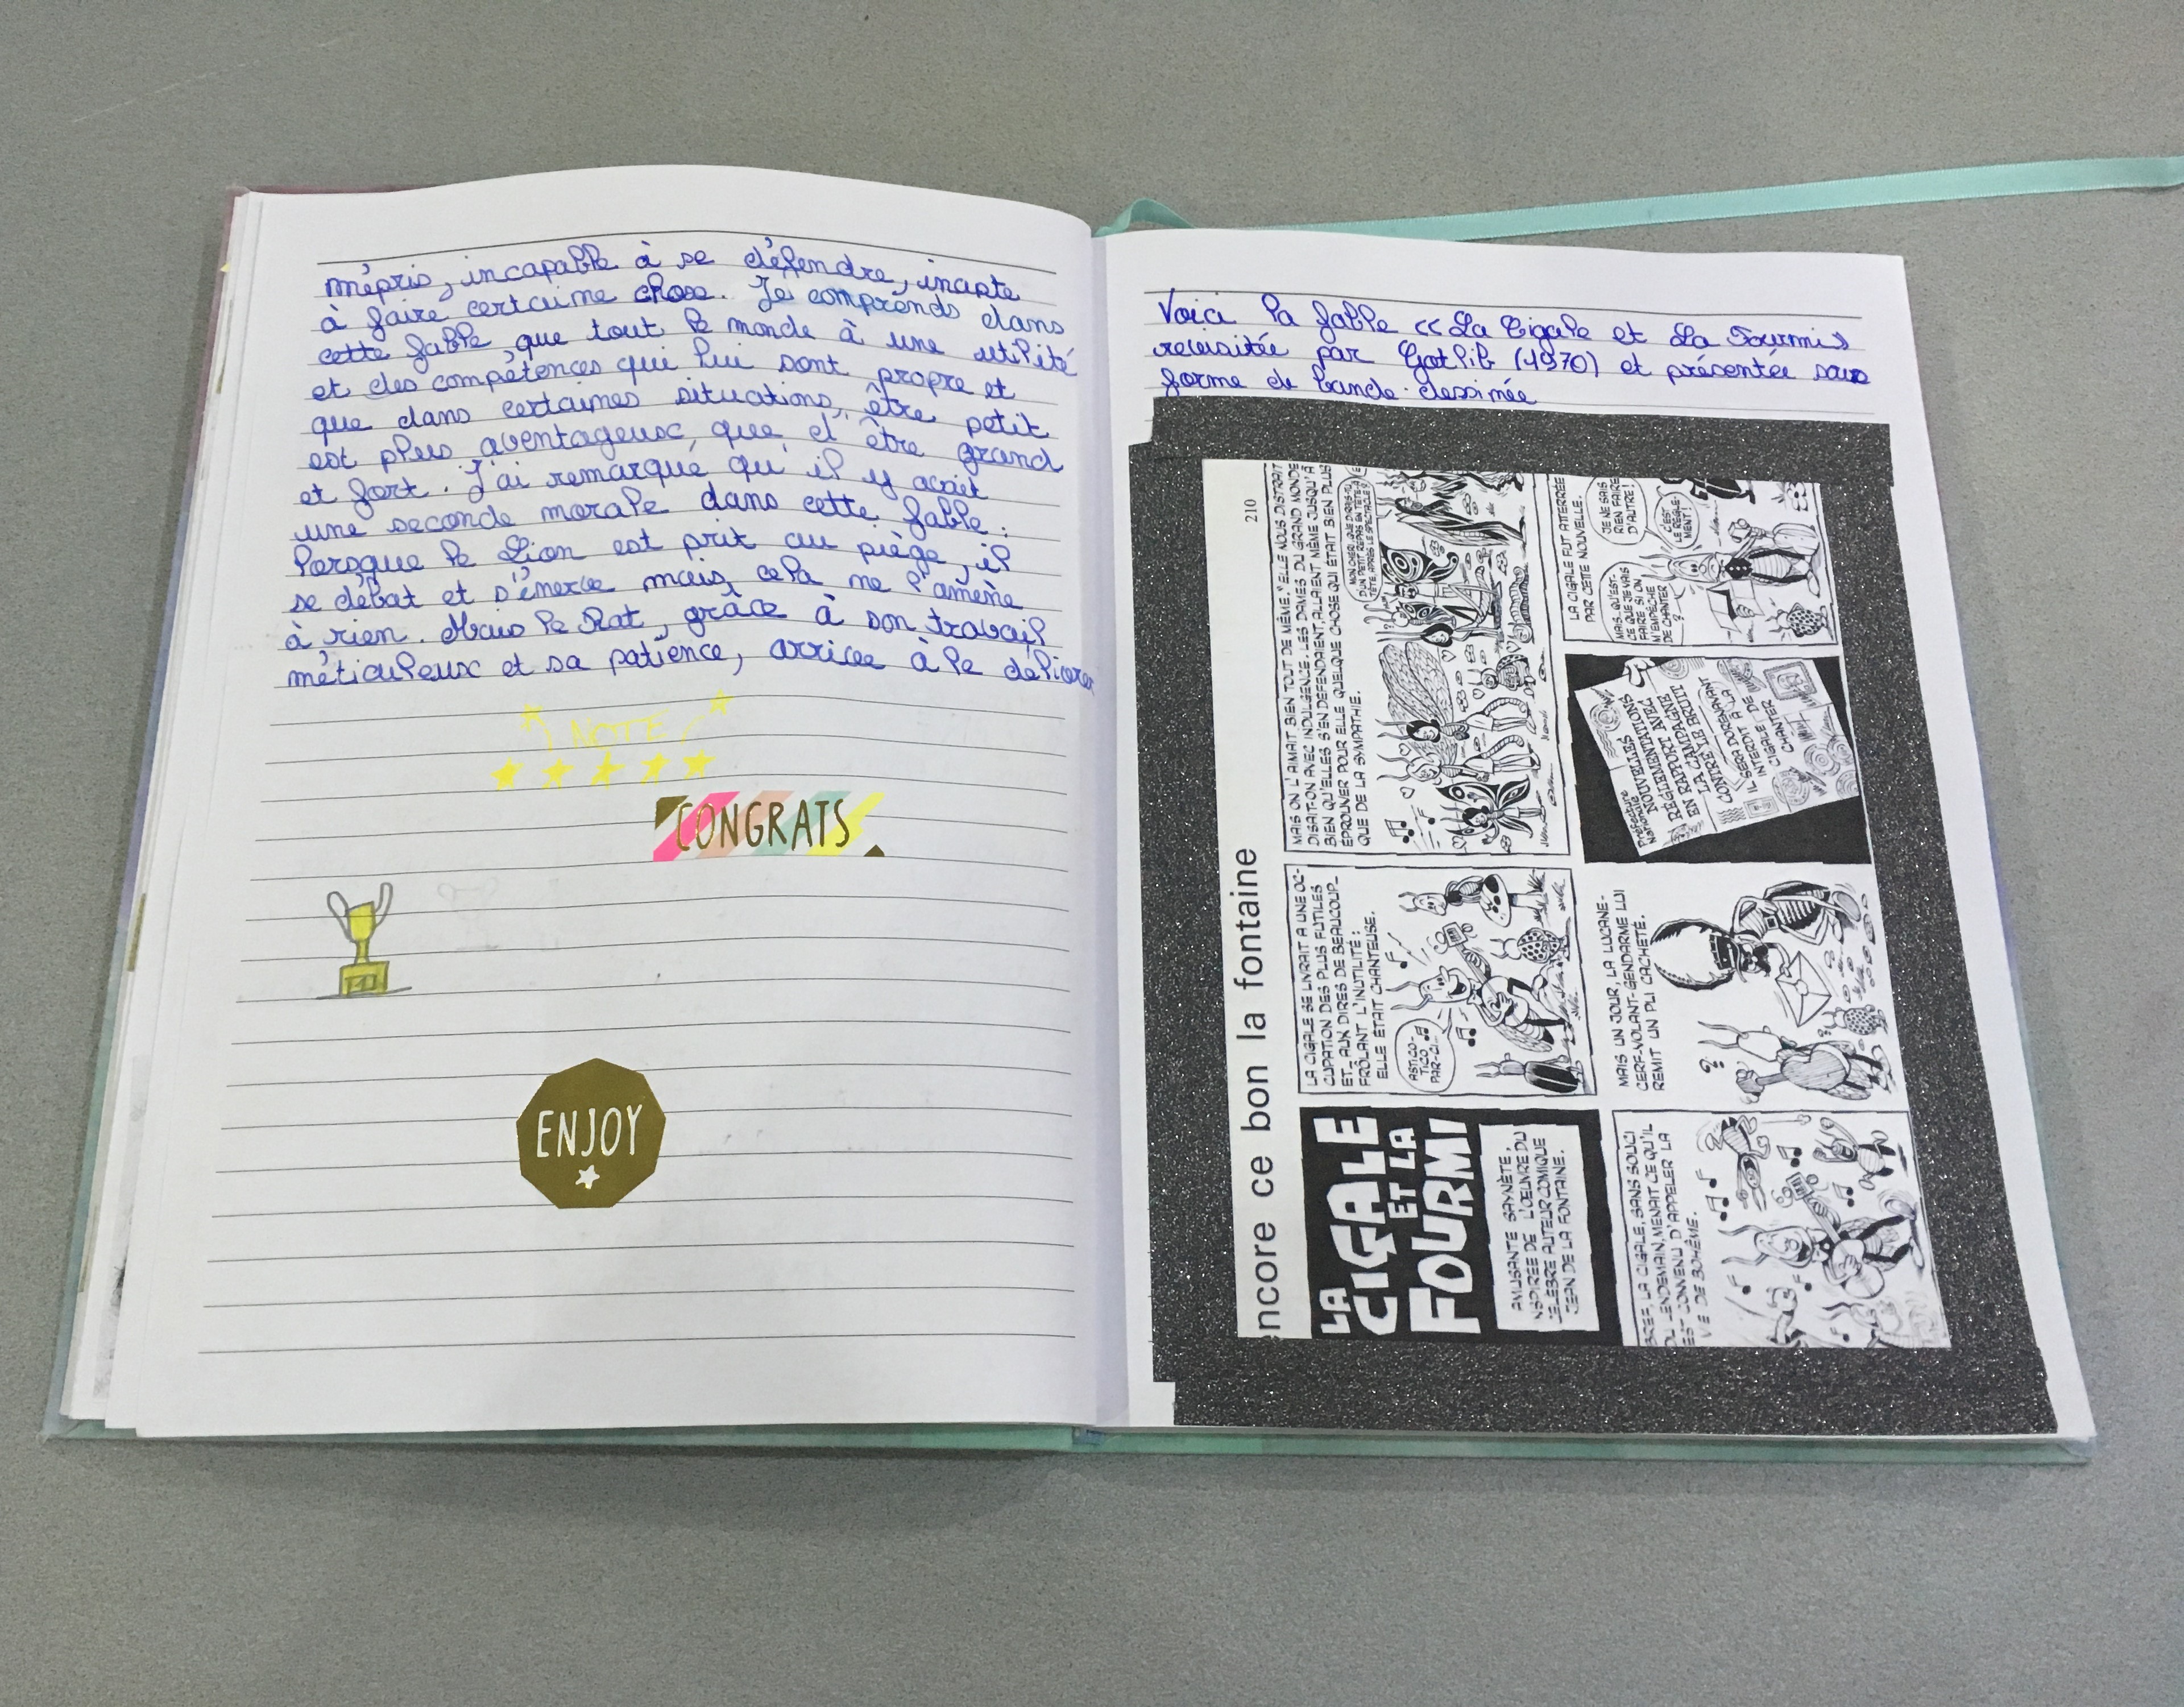 mépris, incapable à se défendre, inapte
à faire certaine chose. Je comprends dans
cette fable que tout le monde à une utilité
et des compétences qui lui sont propre et
que dans certaines situations, être petit
est plus aventageux, que d'être grand
et fort. J'ai remarqué qu'il y avait
une seconde morale dans cette fable :
lorsque le Lion est prit au piège, il
se débat et s'énerve mais, cela ne l'amène
à rien. Mais le Rat, grâce à son travail
méticuleux et sa patience, arrive à le délivrer
NOTE
CONGRATS
10
ENJOY
Voici la fable << La Cigale et La Fourmi >>
revisitée par Gotlib (1970) et présentée sous
forme de bande-dessinée
210
encore ce bon la fontaine
LA
CIGALE
ET LA
FOURMI
AMUSANTE SAYNÈTE,
INSPIRÉE DE L'OEUVRE DU
CÉLÈBRE AUTEUR COMIQUE
JEAN DE LA FONTAINE.
LA CIGALE SE LIVRAIT A UNE OC-
CUPATION DES PLUS FUTILES
ET, AUX DIRES DE BEAUCOUP,
FRÔLANT L'INUTILITÉ :
ELLE ÉTAIT CHANTEUSE.
ASTICO-
TICO
PAR-CI...
MAIS ON L'AIMAIT BIEN TOUT DE MÊME. "ELLE NOUS DISTRAIT"
DISAIT-ON AVEC INDULGENCE. LES DAMES DU GRAND MONDE
BIEN QU'ELLES S'EN DÉFENDAIENT, ALLAIENT MÊME JUSQU'À
ÉPROUVER POUR ELLE QUELQUE CHOSE QUI ÉTAIT BIEN PLUS
QUE DE LA SYMPATHIE.
MON CHER, QUE DIRIS-TU
D'UN PETIT REPAS EN TÊTE-À-
TÊTE, APRÈS LE SPECTACLE ?
BREF, LA CIGALE, SANS SOUCI
DU LENDEMAIN, MENAIT CE QU'IL
EST CONVENU D'APPELER LA
VIE DE BOHÈME.
MAIS UN JOUR, LA LUCANE-
CERF-VOLANT-GENDARME LUI
REMIT UN PLI CACHETÉ.
?
Préfecture
Nationale
NOUVELLES
RÉGLEMENTATIONS
EN RAPPORT AVEC
LA CAMPAGNE
CONTRE LE BRUIT
IL SERA DORÉNAVANT
INTERDIT À LA
CIGALE DE
CHANTER
LA CIGALE FUT ATTERRÉE
PAR CETTE NOUVELLE.
MAIS... QU'EST-
CE QUE JE VAIS
FAIRE SI ON
M'EMPÊCHE
DE CHANTER
?
JE NE SAIS
RIEN FAIRE
D'AUTRE !
C'EST
LE RÈGLE-
MENT !